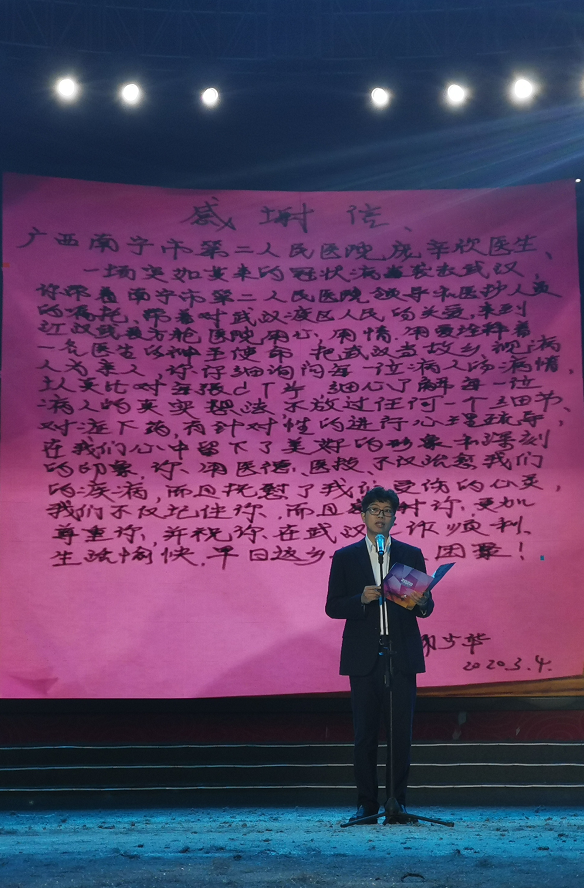 感谢信、
广西南宁市第二人民医院庞医生、
一场突如其来的冠状病毒袭击武汉,
你带着南宁市第二人民医院领导和医护人员
的嘱托,带着对武汉疫区人民的关爱,来到
江汉武展方舱医院,用心,用情,用爱诠释着
一名医生的神圣使命,把武汉当故乡,视病
人为亲人,你仔细询问每一位病人的病情,
认真比对每张CT片,细心了解每一位
病人的真实想法,不放过任何一个细节,
对症下药,有针对性的进行心理疏导,
在我们心中留下了美好的形象和深刻
的印象,你、用医德、医技、不仅治愈我们
的疾病,而且抚慰了我们受伤的心灵,
我们不仅记住你,而且 你,更加
尊重你,并祝你在武汉 作顺利、
生活愉快,早日返乡 团聚!
少华
2020.3.4.